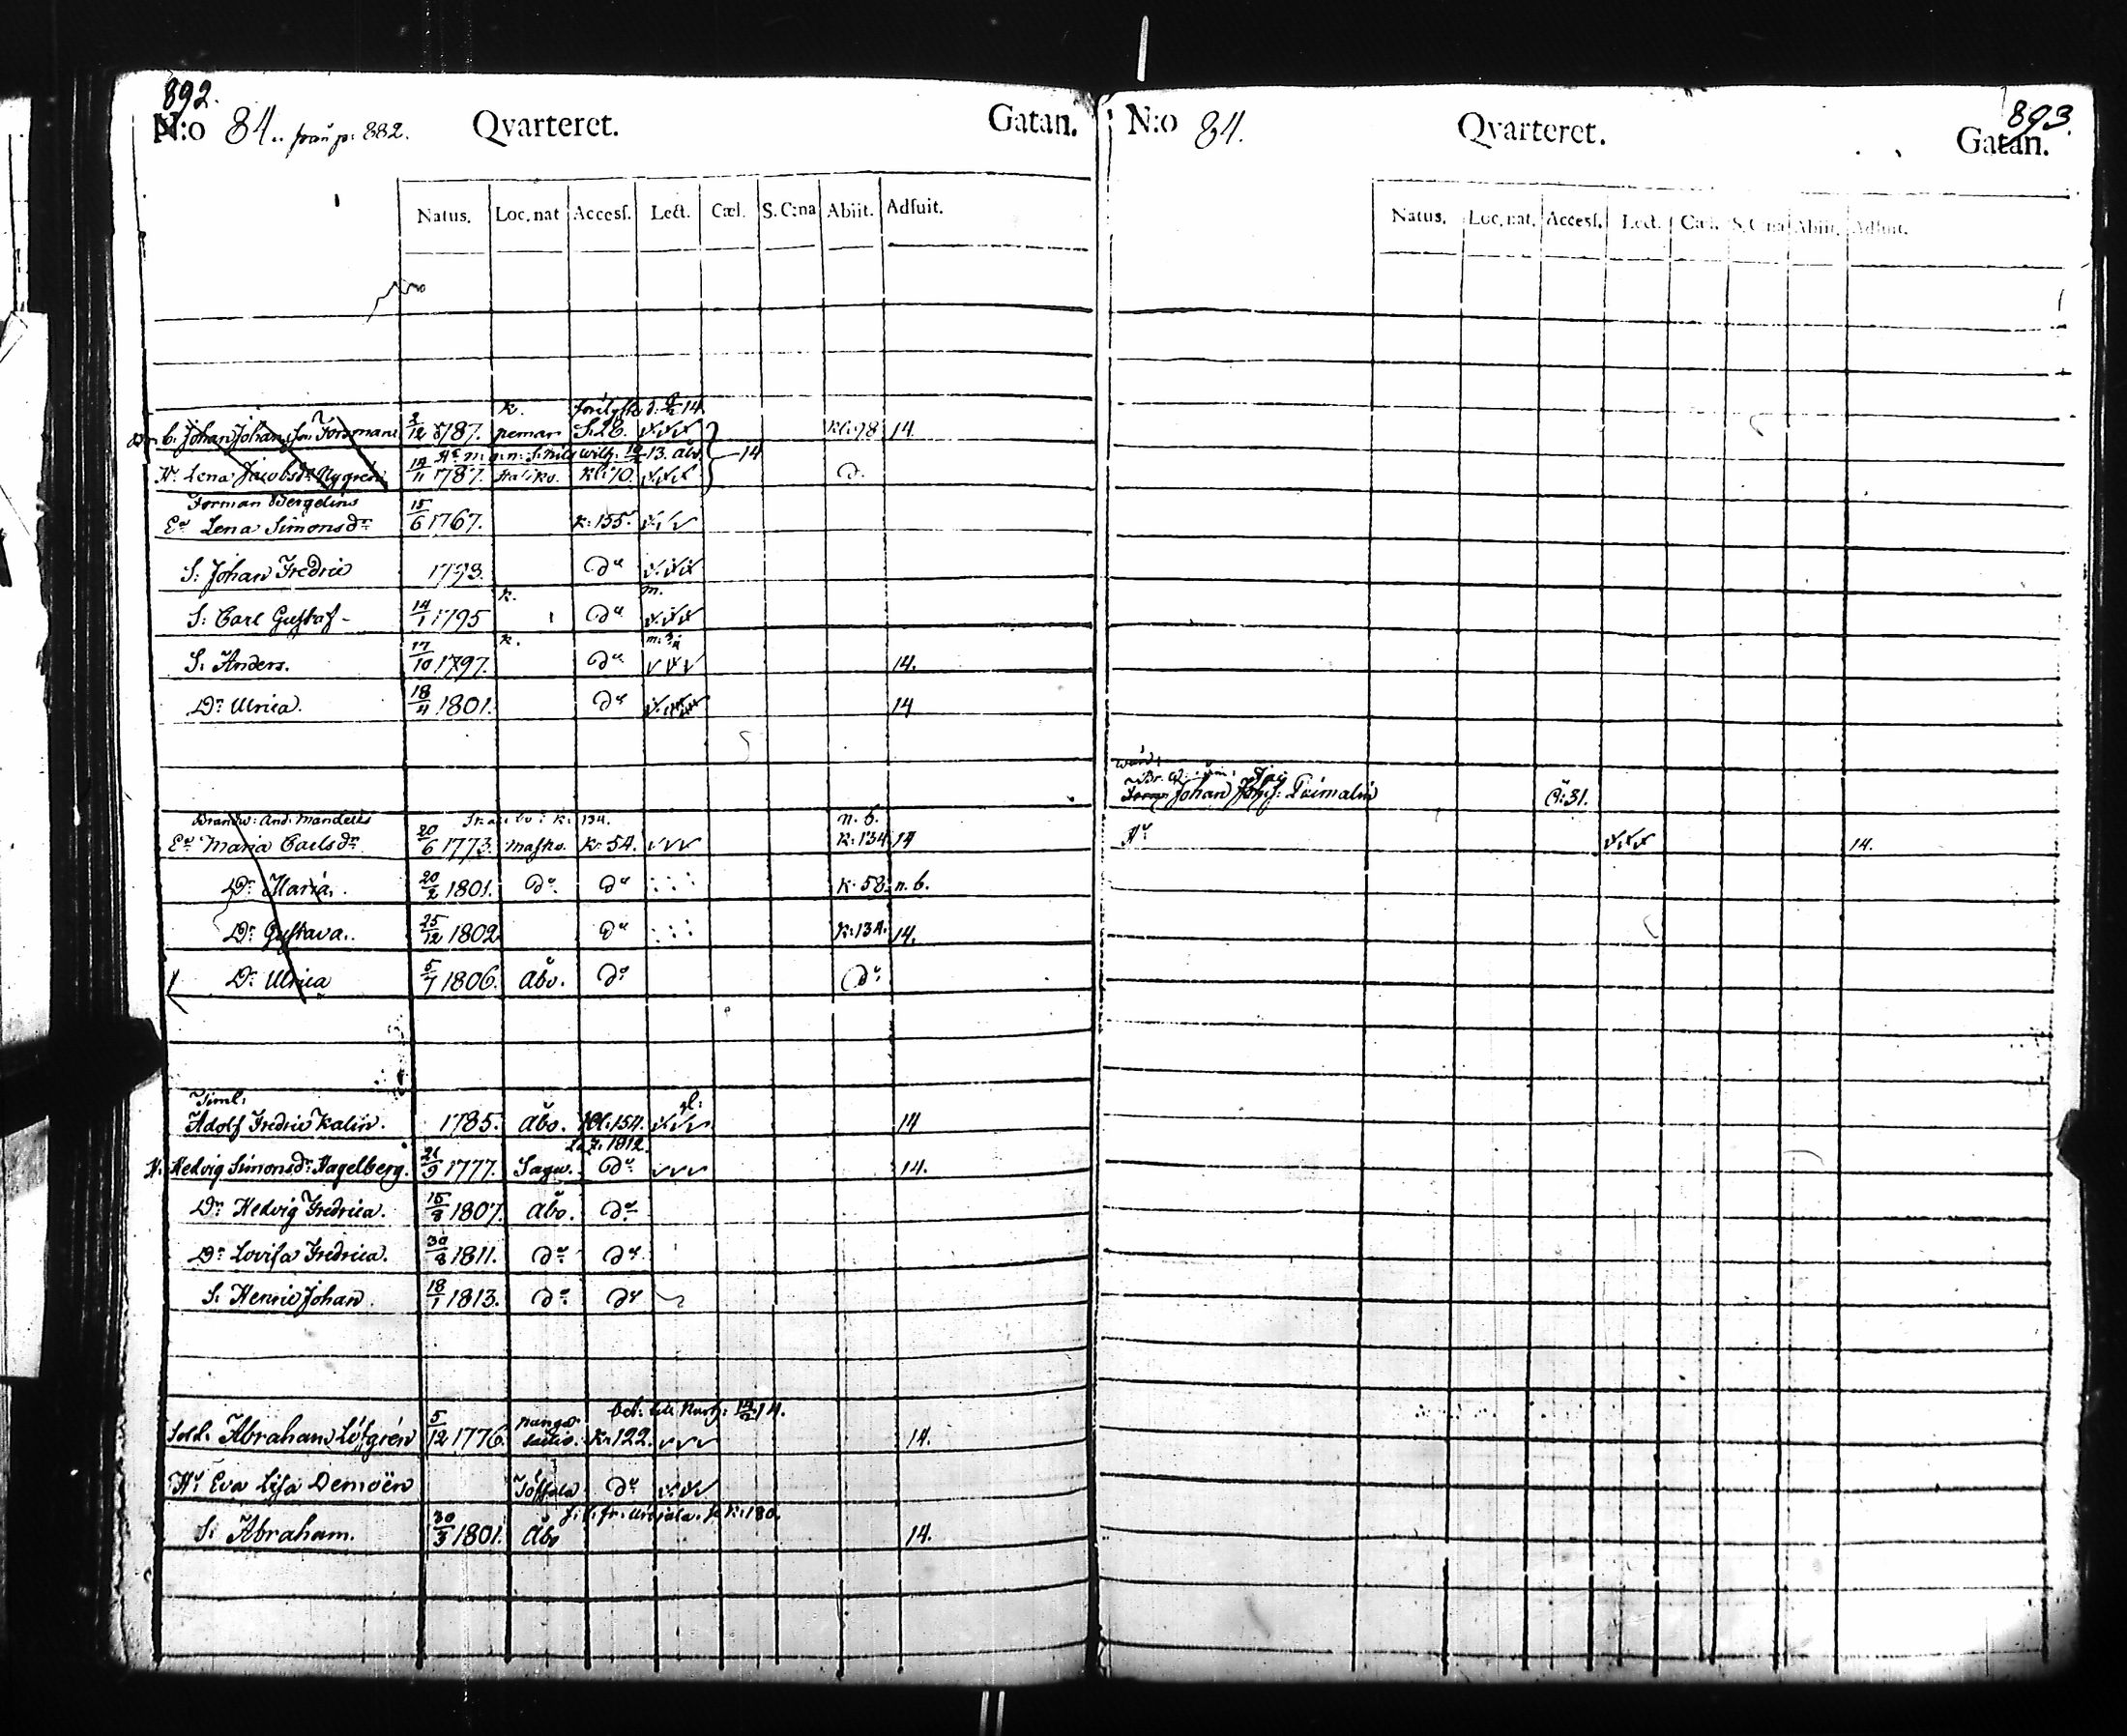 892.
N:o 84.. från p: 882. Qvarteret. Gatan.
Natus. Loc. nat Accesſ. Lect. Cæl. S. C:na Abiit. Adſuit.
k. 14
b. Johan Johansson Forsman 2/12 1787. pemar S.28. Kl:98 14.
13. 14
Hu Lena Jacobsdr Nygrén 1787. Kl:70. do.
Forman Bergelins
Ea Lena Simonsdr 15/6 1767. K:155.
S: Johan Fredric 1793. do
k. m.
S: Carl Gustaf 14/1 1795 do
k. m:
S. Anders. 17/10 1797. do 14.
Dr Ulrica. 18/11 1801. do 14
Brandw: And. Mandells k: 134. n. b.
Ea Maria Carlsdr 20/6 1773. Masko. K: 54. K:134 14
Dr Maria. 20/2 1801. do do K: 58. n. b.
Dr Gustava.. 25/12 1802. do K:134. 14.
Dr Ulrica 5/7 1806. Åbo. do do
Timl:
Adolf Fredric Kalin. 1785. Åbo. Kl:154. 14
1812.
H: Hedvig Simonsdr Hagelberg. 21/9 1777. Sagu. do 14.
Dr Hedvig Fredrica. 15/8 1807. Åbo. do
Dr Lovisa Fredrica. 30/8 1811. do do
S. Henric Johan. 18/1 1813. do do
14.
Sold. Abraham Löfgrén 5/12 1776. K:122. 14.
Hu Eva Lisa Demoën Töffsala do
K:180.
S: Abraham. 30/3 1801. Åbo 14.
893.
N:o 84. Qvarteret. Gatan.
Natus. Loc. nat. Accesſ. Lect. Cæl. S. C:na Abiit. Adſuit.
Johan
Hu 14.